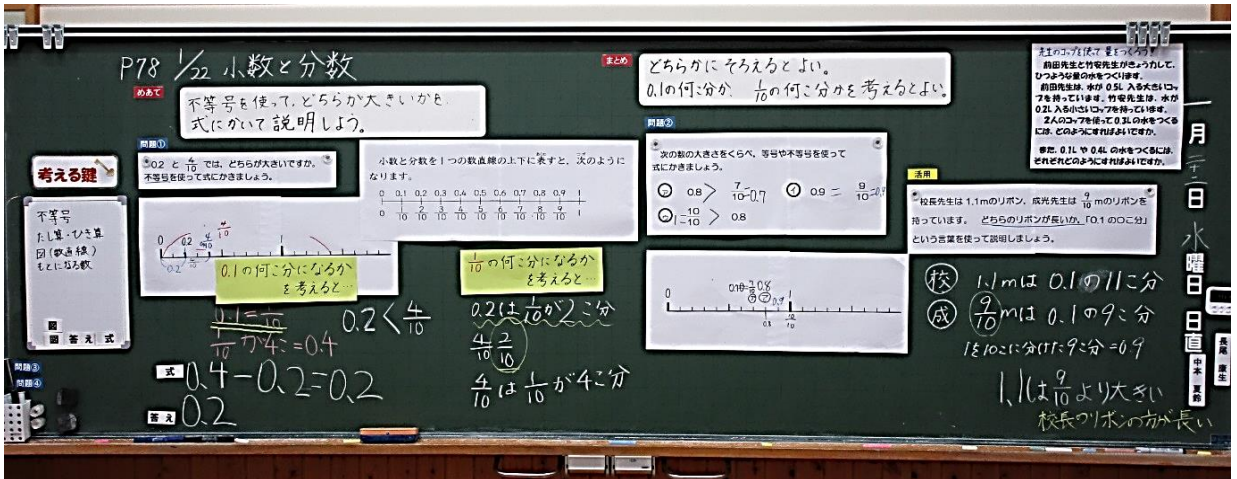 P78 1/22 小数と分数
めあて
不等号を使って、どちらが大きいかを
式にかいて説明しよう。
考える鍵
不等号
たし算・ひき算
図(数直線)
もとになる数
図 答え 式
問題③
問題④
問題①
0.2 と 4/10 では、どちらが大きいですか。
不等号を使って式にかきましょう。
0 0.2 4/10 1
0.1の何こ分になるか
を考えると…
0.1=1/10
1/10が4こ=0.4
0.2<4/10
式
0.4-0.2=0.2
答え
0.2
小数と分数を1つの数直線の上下に表すと、次のように
なります。
0 0.1 0.2 0.3 0.4 0.5 0.6 0.7 0.8 0.9 1
0 1/10 2/10 3/10 4/10 5/10 6/10 7/10 8/10 9/10 10/10
1/10の何こ分になるか
を考えると…
0.2は1/10が2こ分
4/10 2/10
4/10は1/10が4こ分
まとめ
どちらかにそろえるとよい。
0.1の何こ分か、1/10の何こ分かを考えるとよい。
問題②
次の数の大きさをくらべ、等号や不等号を使って
式にかきましょう。
㋐ 0.8 > 7/10=0.7
㋑ 0.9 = 9/10=0.9
㋒ 1=10/10 > 0.8
0 0.8 0.9 1
活用
校長先生は1.1mのリボン、成光先生は 9/10 mのリボンを
持っています。 どちらのリボンが長いか、「0.1の○こ分」
という言葉を使って説明しましょう。
校 1.1mは 0.1の11こ分
成 9/10mは 0.1の9こ分
1を10こに分けた9こ分=0.9
1.1は9/10より大きい
校長のリボンの方が長い
先生のコップを使って量をつくろう!
前田先生と竹安先生がきょう力して、
ひつような量の水をつくります。
前田先生は、水が 0.5L 入る大きいコッ
プを持っています。竹安先生は、水が
0.2L入る小さいコップを持っています。
2人のコップを使って0.3Lの水をつくる
には、どのようにすればよいですか。
また、0.1L や 0.4L の水をつくるには、
それぞれどのようにすればよいですか。
一月二十二日 水曜日 日直
中本 夏鈴
長尾 康生